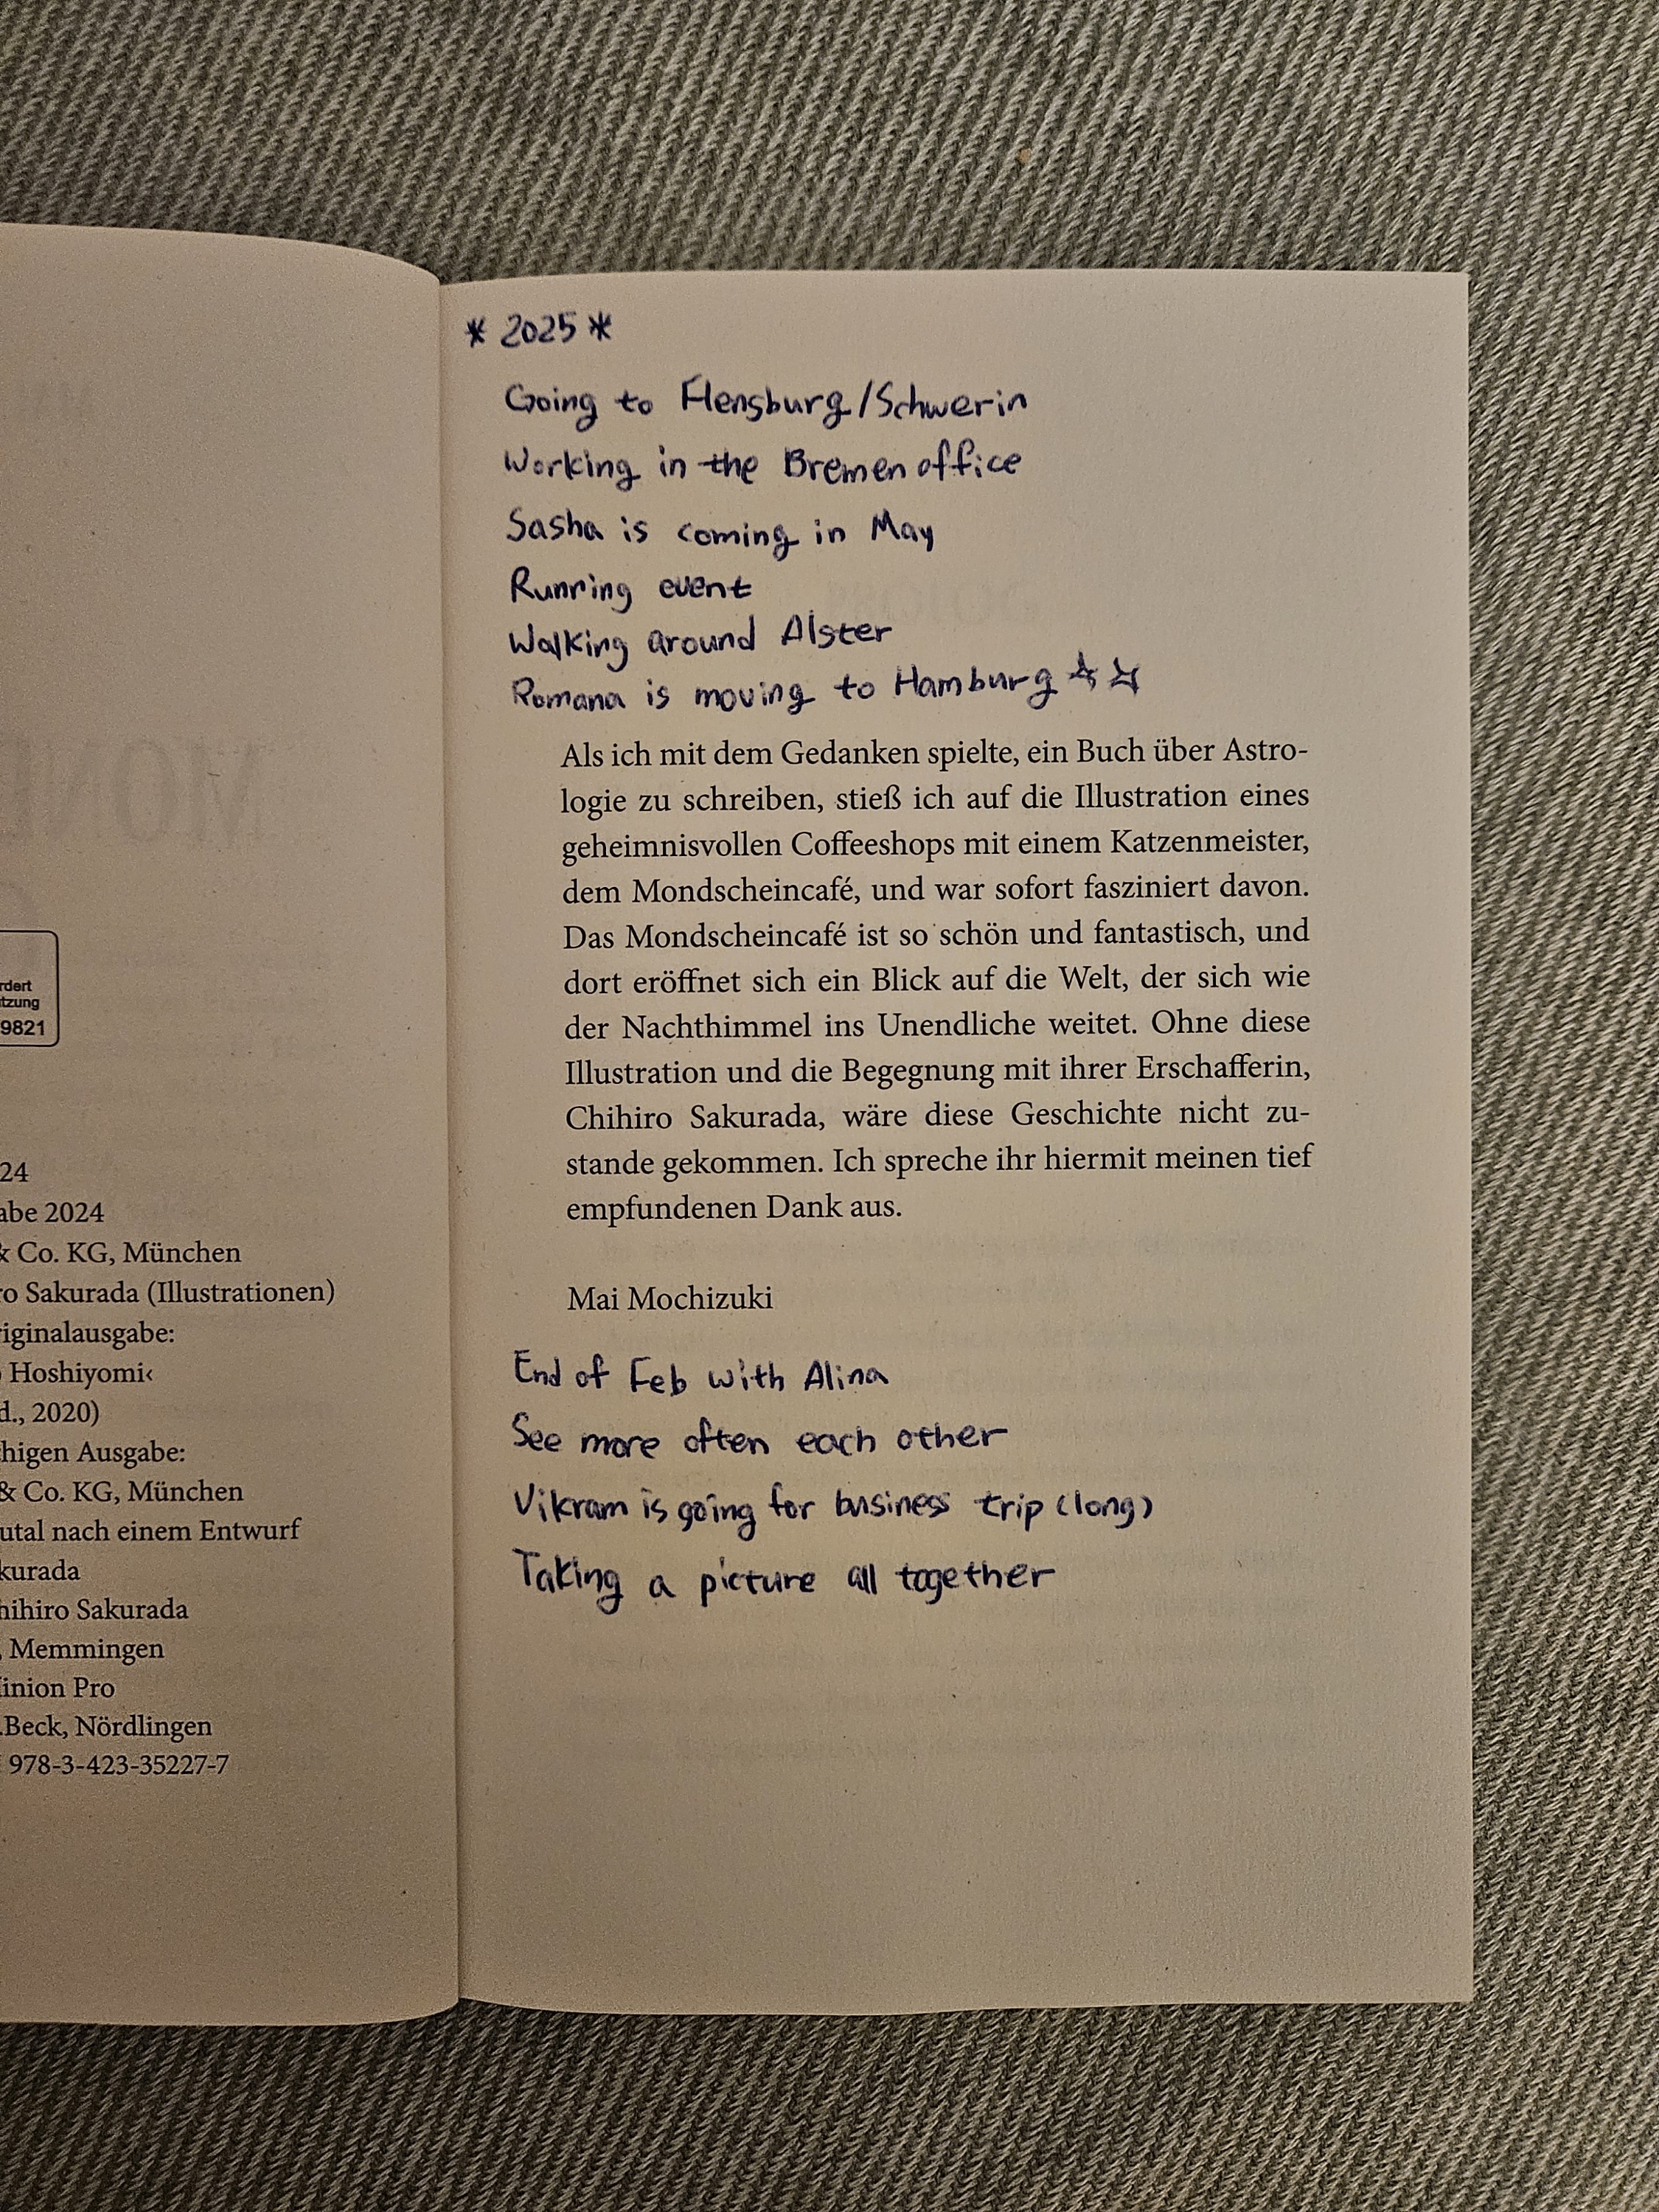 rdert
tzung
9821
24
abe 2024
& Co. KG, München
ro Sakurada (Illustrationen)
riginalausgabe:
Hoshiyomi‹
d., 2020)
higen Ausgabe:
& Co. KG, München
utal nach einem Entwurf
kurada
hihiro Sakurada
, Memmingen
inion Pro
.Beck, Nördlingen
978-3-423-35227-7
* 2025 *
Going to Flensburg/Schwerin
Working in the Bremen office
Sasha is coming in May
Running event
Walking around Alster
Romana is moving to Hamburg ☆☆
Als ich mit dem Gedanken spielte, ein Buch über Astro-
logie zu schreiben, stieß ich auf die Illustration eines
geheimnisvollen Coffeeshops mit einem Katzenmeister,
dem Mondscheincafé, und war sofort fasziniert davon.
Das Mondscheincafé ist so schön und fantastisch, und
dort eröffnet sich ein Blick auf die Welt, der sich wie
der Nachthimmel ins Unendliche weitet. Ohne diese
Illustration und die Begegnung mit ihrer Erschafferin,
Chihiro Sakurada, wäre diese Geschichte nicht zu-
stande gekommen. Ich spreche ihr hiermit meinen tief
empfundenen Dank aus.
Mai Mochizuki
End of Feb with Alina
See more often each other
Vikram is going for business trip (long)
Taking a picture all together